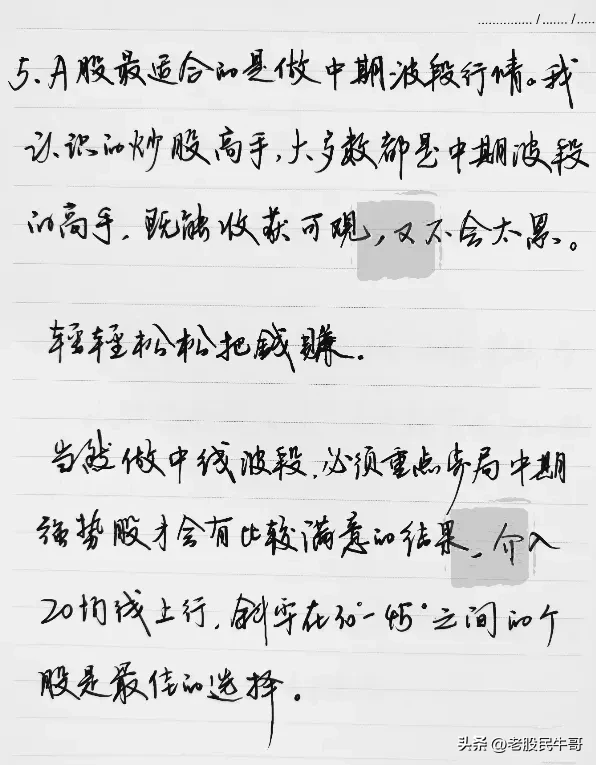 ............... / ....... / .....
5、A股最适合的是做中期波段行情。我
认识的炒股高手,大多数都是中期波段
的高手,既能收获可观,又不会太累。
轻轻松松把钱赚.
当然做中线波段,必须重点布局中期
强势股才会有比较满意的结果,介入
20均线上行,斜率在30°-45°之间的个
股是最佳的选择。
头条 @老股民牛哥